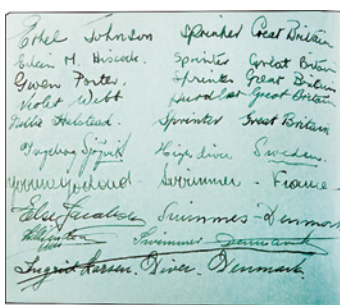 Ethel Johnson Sprinter Great Britain
Eileen M. Hiscock. Sprinter Great Britain
Gwen Porter. Sprinter Great Britain
Violet Webb Hurdler Great Britain
Nellie Halstead. Sprinter Great Britain
Ingeborg Sjöqvist High diver Sweden.
Yvonne Godard Swimmer - France
Else Jacobsen Swimmer - Denmark
Swimmer Denmark
Ingrid Larsen. Diver. Denmark.